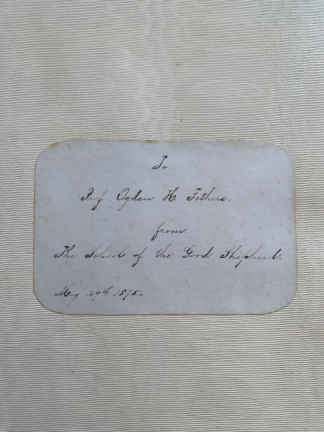 To
Prof Ogden H Fethers.
from
The School of the Good Shepherd.
May 29th 1875.